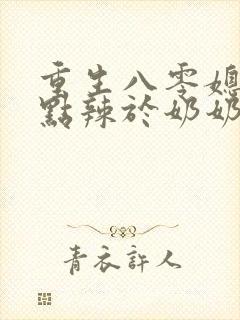 重生八零媳
點辣於奶奶
青衣許人